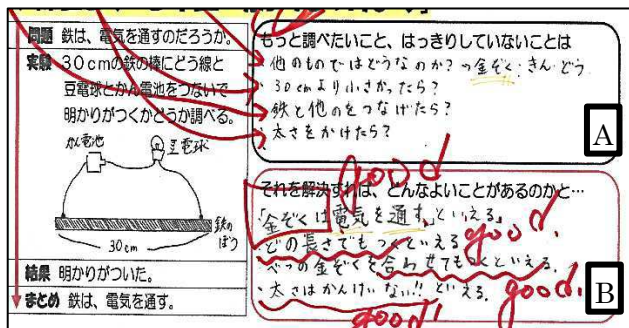 問題 鉄は、電気を通すのだろうか。
実験 30cmの鉄の棒にどう線と
豆電球とかん電池をつないで
明かりがつくかどうか調べる。
かん電池
豆電球
鉄のぼう
30cm
結果 明かりがついた。
まとめ 鉄は、電気を通す。
もっと調べたいこと、はっきりしていないことは
・他のものではどうなのか?→金ぞく・きん・どう
・30cmより小さかったら?
・鉄と他のをつなげたら?
・太さをかけたら?
A
good
それを解決すれば、どんなよいことがあるのかと…
「金ぞくは電気を通す」といえる」
・どの長さでもつくといえる good.
・べつの金ぞくを合わせてもつくといえる。
・太さはかんけいない!!といえる。 good.
good!
B